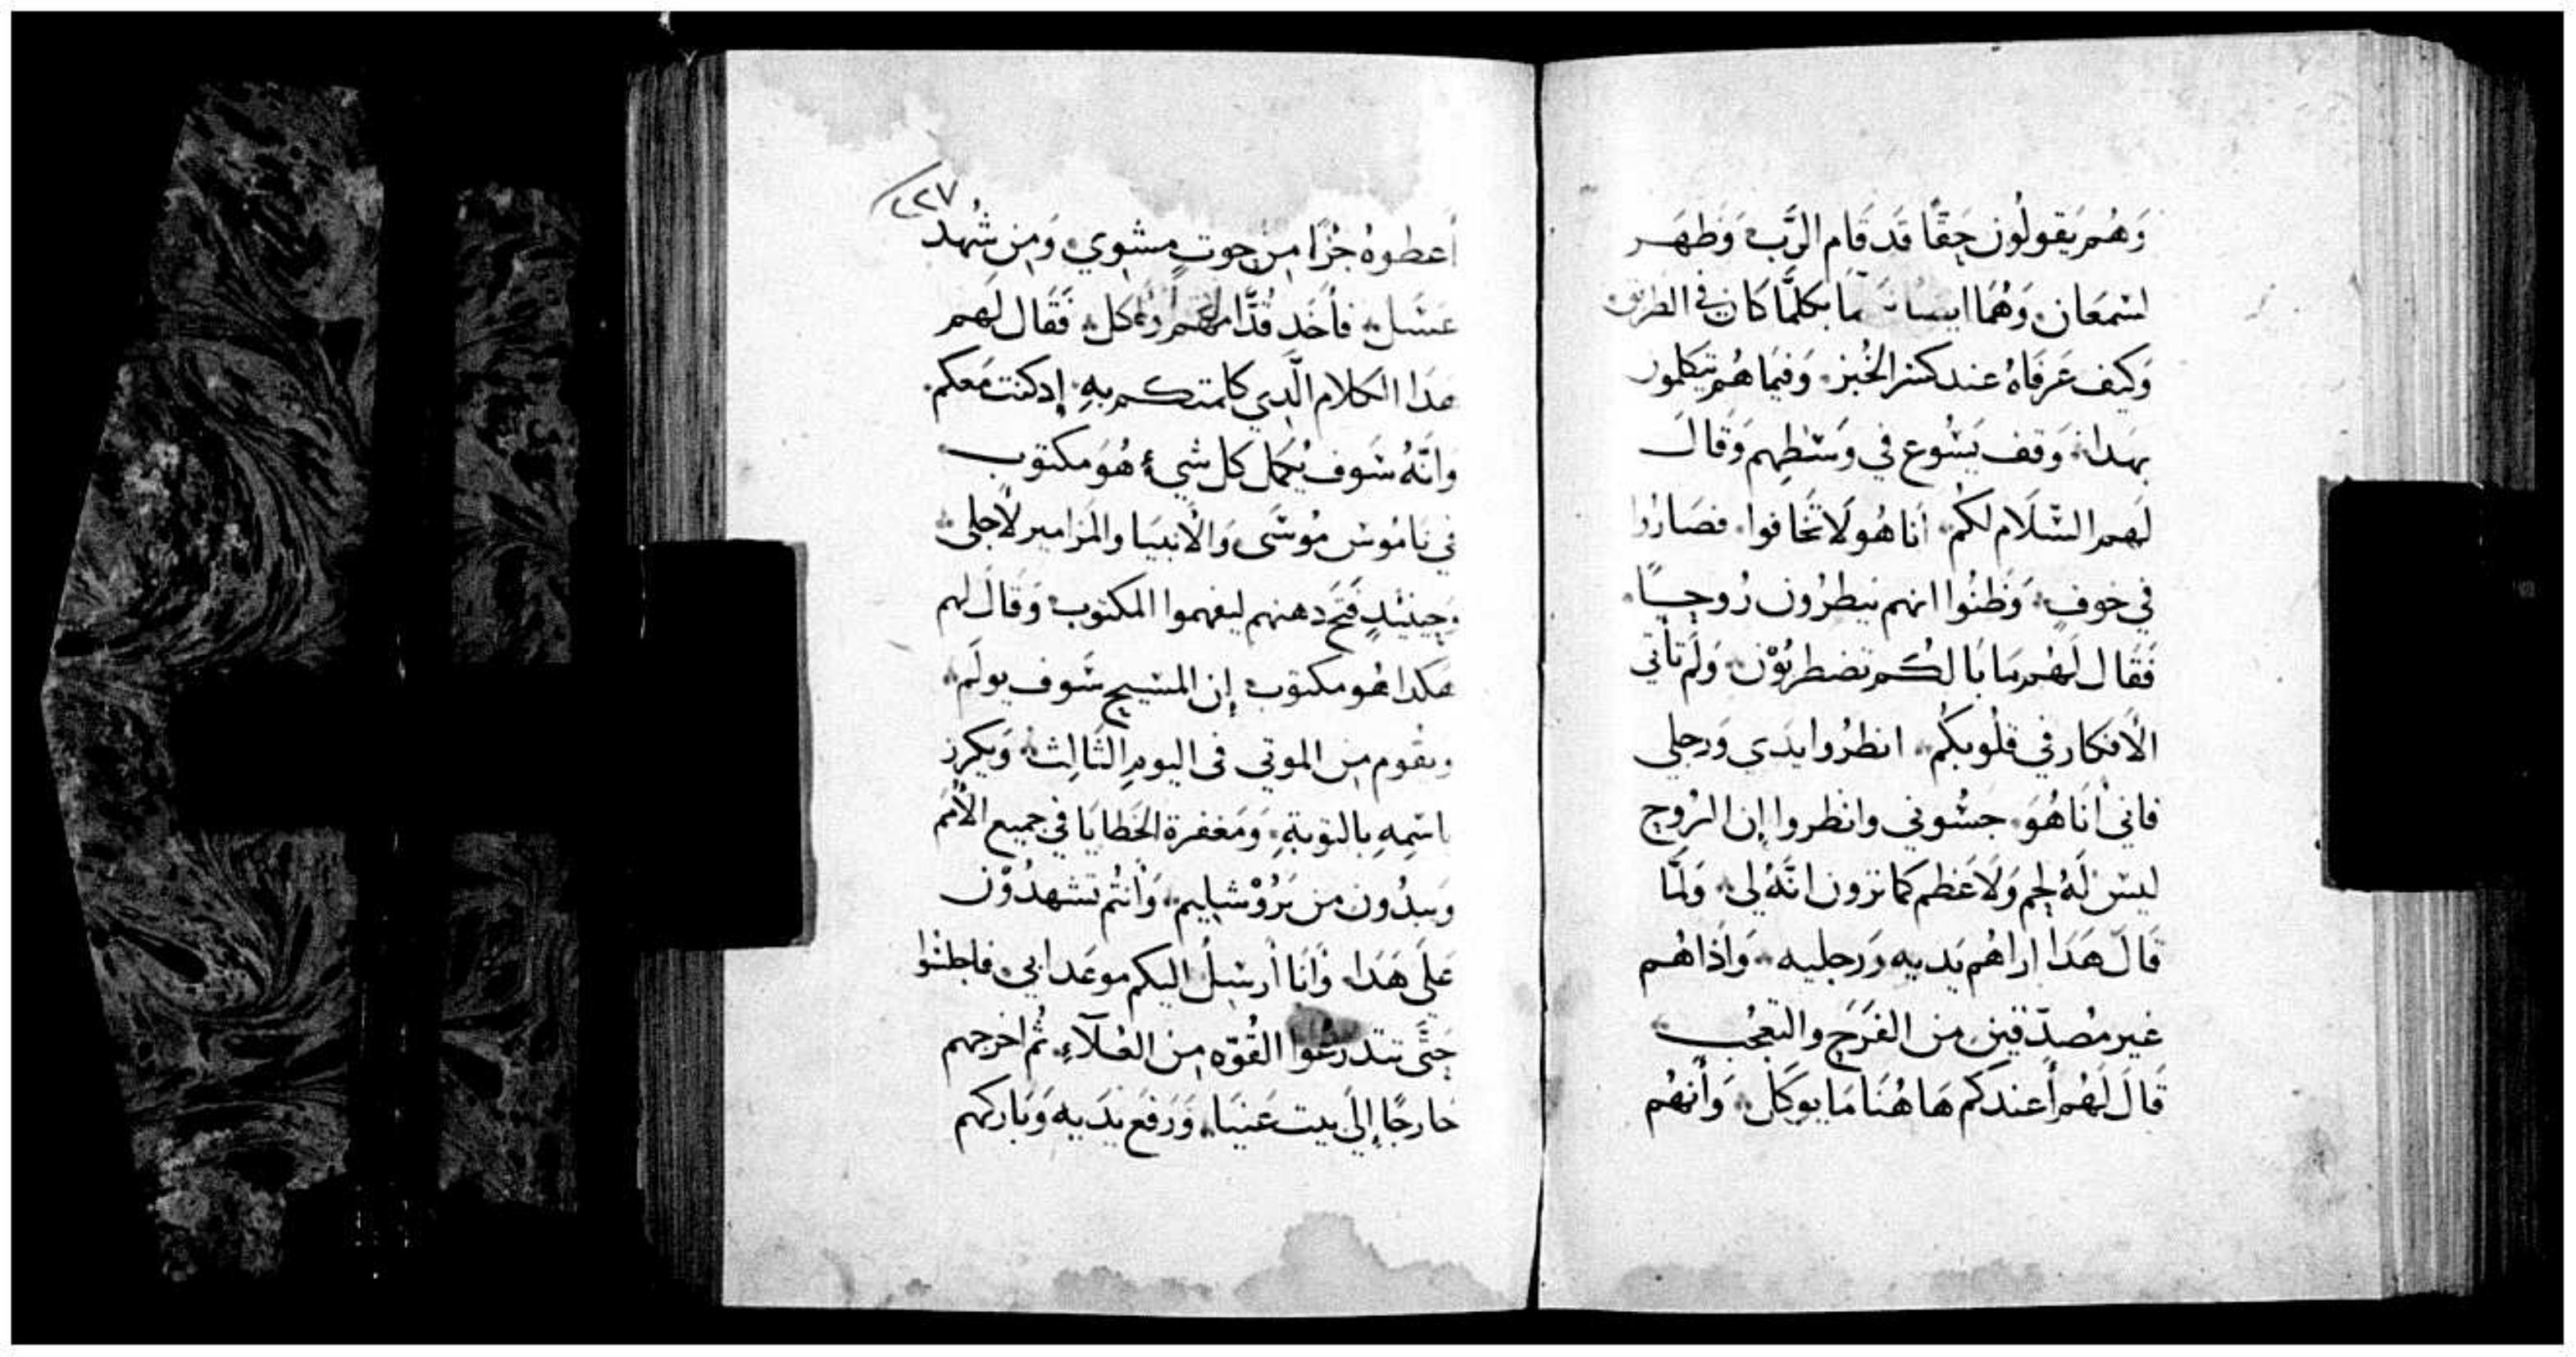 وَهُم يَقولُون حَقًّا قَد قَام الرَّب وَظَهَر
لسْمعَان وَهُمَا ما بكلمَّا كان في الطريق
وَكيف عَرفَاهُ عند كسْر الخُبز وَفيمَا هُم يتكلمون
بهَدا وَقف يَسُوع في وَسْطهِم وَقَالَ
لَهمر السَّلَام لكُم انا هُو لَا تَخَافوا فصَارُوا
في خوفٍ وَظَنُوا انهم ينظرُون رُوحًا
فَقَال لَهُم مَا بَالكُم تضطربُوْن وَلم تأتي
الأفكار في قلُوبكُم انظرُوا يدَي وَرجلي
فاني أنَا هُوَ جسُّوني وانظروا إن الرُوح
ليسْ لَهُ لحم وَلَا عَظم كما ترون انَّهُ لي وَلمَّا
قَالَ هَدَا اراهُم يَديه وَرجليه وَاذا هُم
غير مصَدّقين من الفَرَح والتعجُب
قَال لَهُم أعندكم هَاهُنَا مَا يوكَل وَأنهُم
٢٢٧
أعطوهُ جُزًا مِن حوتٍ مشوي وَمِن شُهد
عسَل فأخَد قُدَّامهُم وَأكل فَقَال لَهم
هَدَا الكلام الَّدِي كلمتكم بهِ إد كنت مَعكم
وانَّهُ سَوف يُكمَل كل شيءٍ هُوَ مكتوب
في نَامُوس مُوسَى وَالأنبيَا والمزَامير لأجلى
وَحينَيدٍ فَتَح دهنهم ليفهموا المكتوب وَقَال لهم
هَكدا هُو مكتوب إن المسيح سَوف يولَم
ويقوم مِن الموتى فى اليومِ الثَّالِث وَيكرز
باسْمِهِ بالتوبَةِ وَمَغفرة الخَطايَا في جميع الأُمَم
وَيبدُون من يَرُوْشَليم وَأنتُم تَشهدُوْن
عَلَى هَدَا وَأنَا أرسِلُ اليكم موعَد ابى فاجلسُوا
حَتَّى تتدرعُوا القُوّه مِن العُلآءِ ثُم اخرجهم
خارجًا إلَى بيت عَنيَا وَرَفَع يدَيه وَبَاركهم